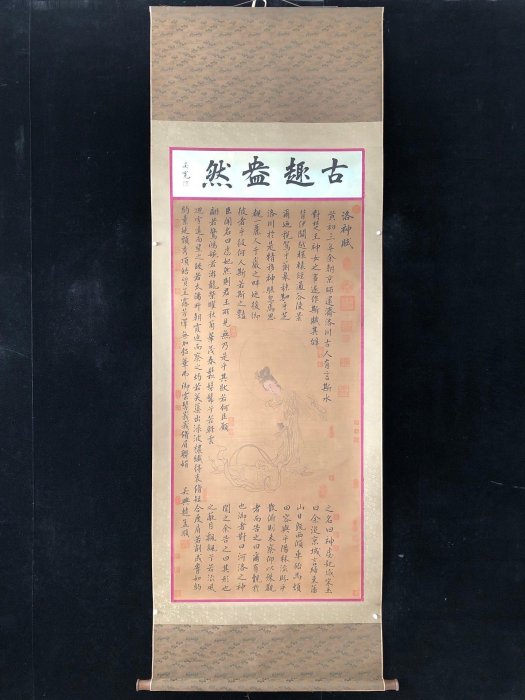 古趣盎然
吴寬
洛神賦
黄初三年余朝京師還濟洛川古人有言斯水
之名曰神虙妃感宋玉
對楚王神女之事遂作斯賦其辭
曰余從京域言歸東藩
背伊闕越轘轅經通谷陵景
山日既西傾車殆馬煩
爾迺税駕乎蘅皋秣駟乎芝
田容與乎陽林流眄乎
洛川於是精移神駭忽焉思
散俯則未察仰以殊觀
覩麗人于巖之畔迺援御
者而告之曰爾有覿於
彼者乎彼何人斯若斯之豔
也御者對曰河洛之神
臣聞名曰虙妃然則君王所見無乃是乎其狀若何臣願
聞之余告之曰其形也
翩若驚鴻婉若游龍榮曜秋菊華茂春松髣髴兮若輕雲
之蔽月飄飄兮若流風
迴雪遠而望之皎若太陽升朝霞迫而察之灼若芙蕖出淥波穠纖得衷脩短合度肩若削成腰如約
約素延頸秀項皓質呈露芳澤無加鉛華弗御雲髻峨峨脩眉聯娟 吴興趙孟頫